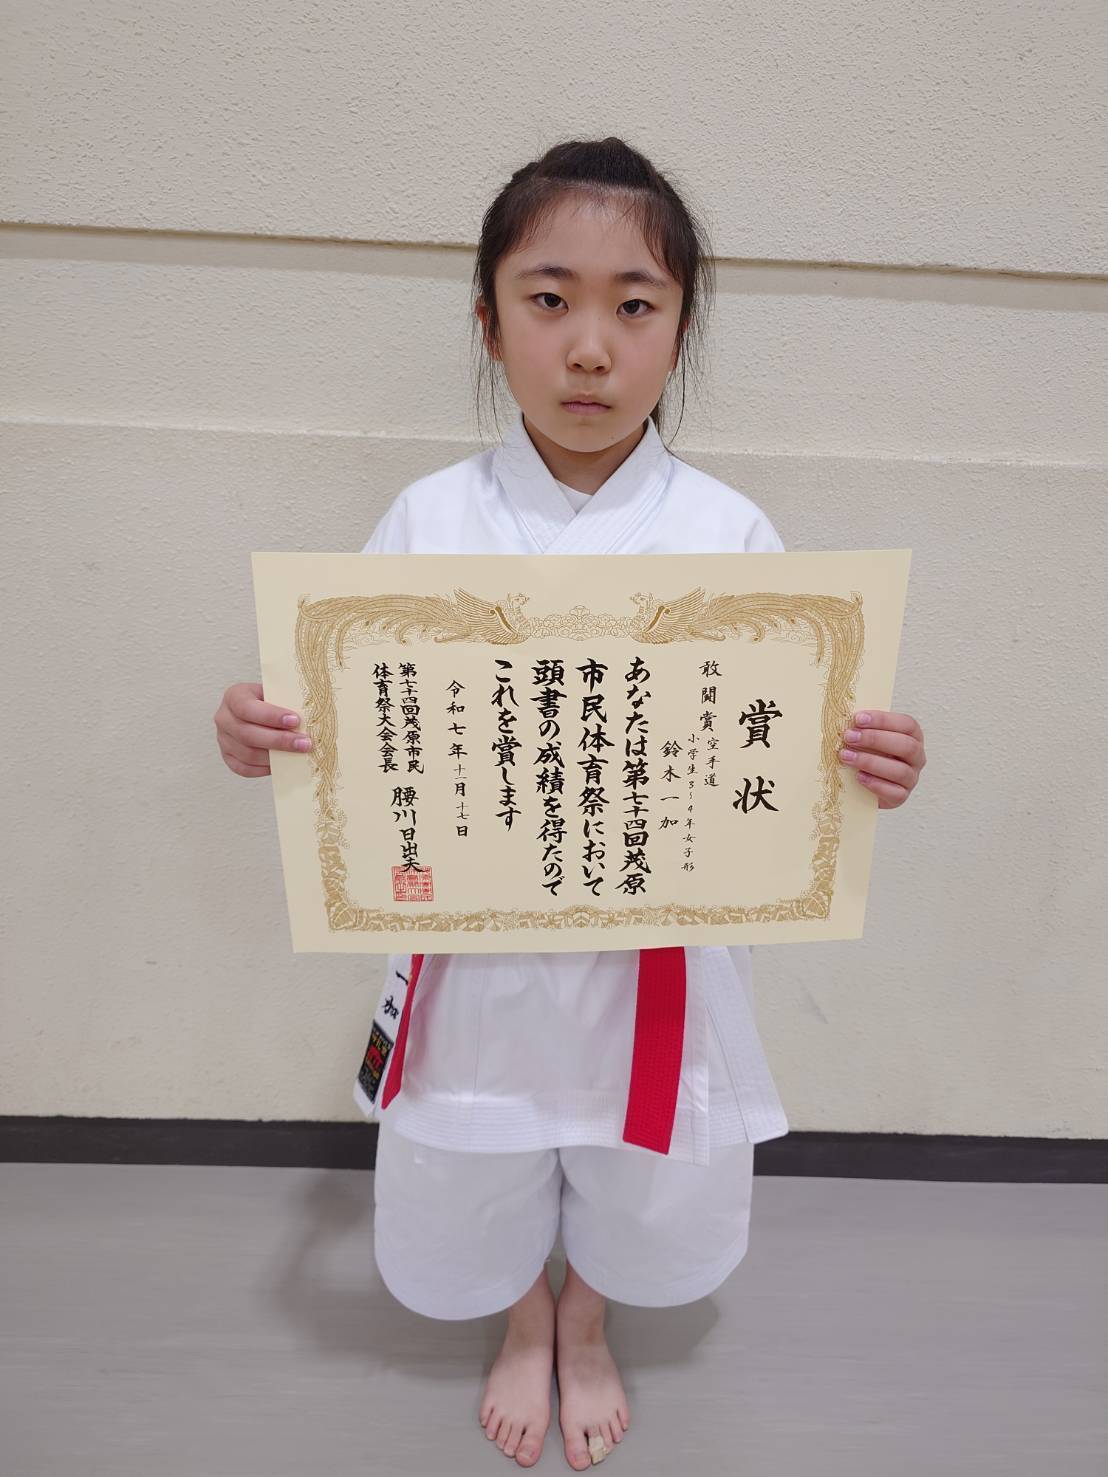 賞状
敢闘賞 空手道
小学生3〜4年女子形
鈴木一加
あなたは第七十四回茂原
市民体育祭において
頭書の成績を得たので
これを賞します
令和七年十一月十七日
第七十四回茂原市民
体育祭大会会長
腰川日出夫
一加